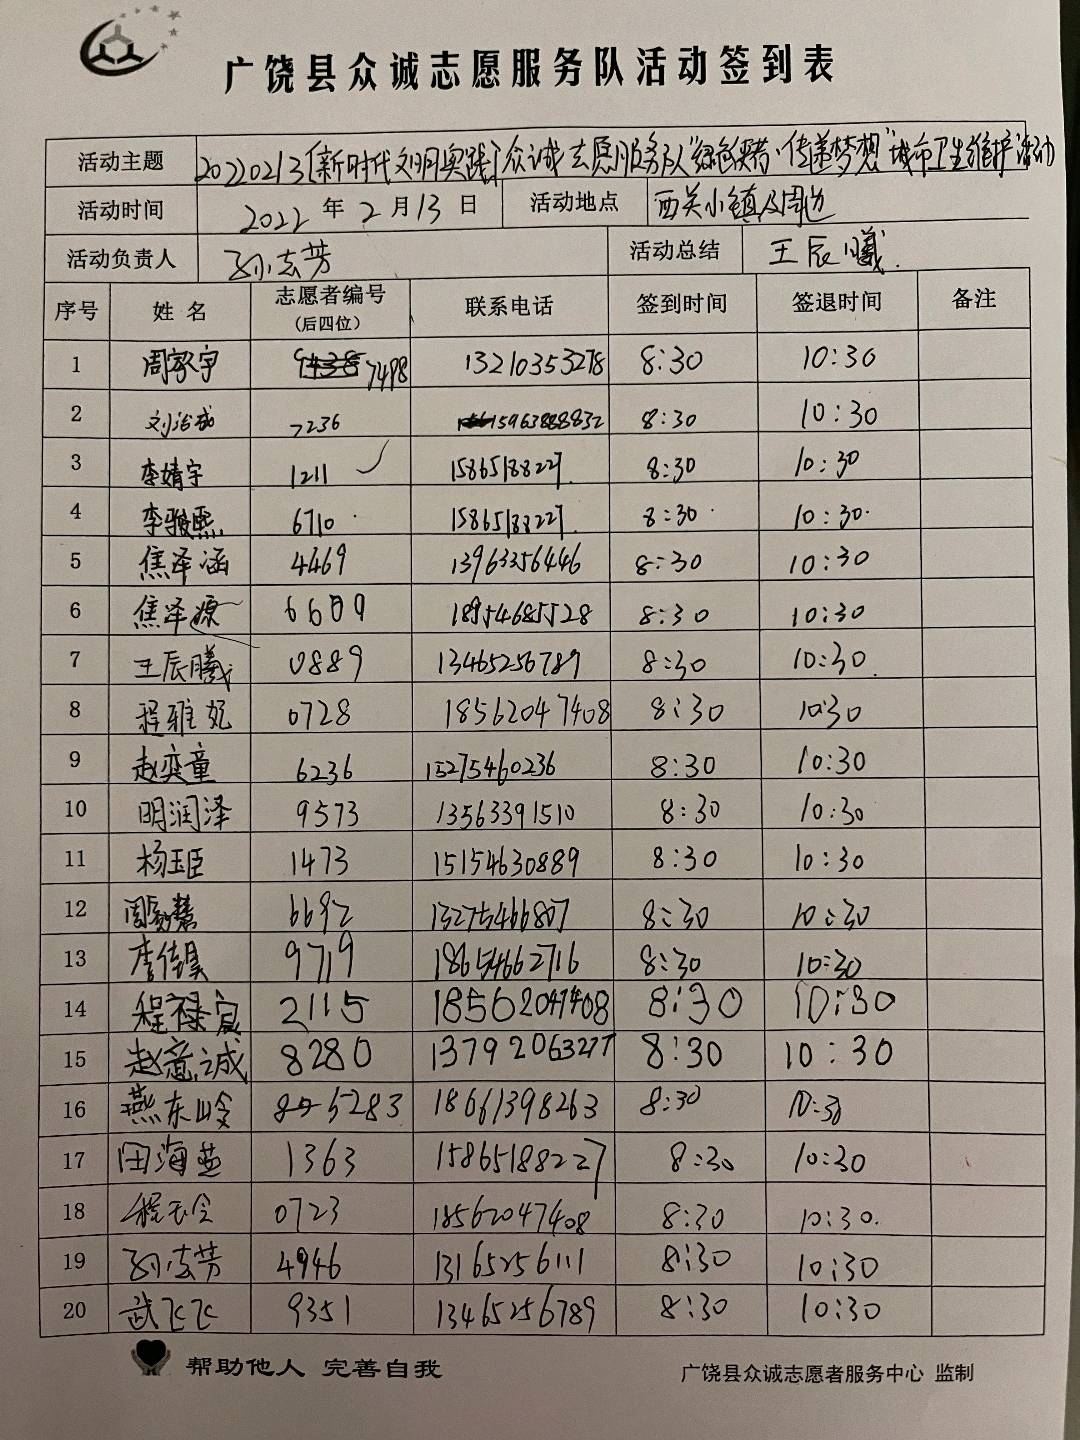 广饶县众诚志愿服务队活动签到表
活动主题 20220213[新时代文明实践]众诚志愿服务队“绿色 传递梦想”城市卫生维护活动
活动时间 2022 年 2 月 13 日 活动地点 西关小镇及周边
活动负责人 孙志芳 活动总结 王辰曦.
序号 姓 名 志愿者编号(后四位) 联系电话 签到时间 签退时间 备注
1 周家宇 7498 13210353278 8:30 10:30
2 刘治成 7236 15963888832 8:30 10:30
3 李婧宇 1211 ✓ 15865188227. 8:30 10:30
4 李骏熙 6710 15865188227. 8:30 10:30
5 焦泽涵 4469 13963356446 8:30 10:30
6 焦泽源 6609 18954685528 8:30 10:30
7 王辰曦 0889 13465256789 8:30 10:30.
8 程雅妃 0728 18562047408 8:30 10:30
9 赵奕童 6236 15275460236 8:30 10:30
10 明润泽 9573 13563391510 8:30 10:30
11 杨玉臣 1473 15154630889 8:30 10:30
12 6692 13275466807 8:30 10:30
13 李佳昊 9719 18654662716 8:30 10:30
14 程禄宸 2115 18562047408 8:30 10:30
15 赵意诚 8280 13792063277 8:30 10:30
16 燕东岭 5283 18661398263 8:30 10:30
17 田海燕 1363 15865188227 8:30 10:30
18 程玉令 0723 18562047408 8:30 10:30.
19 孙志芳 4946 13165256111 8:30 10:30
20 武飞飞 9351 13465256789 8:30 10:30
帮助他人 完善自我 广饶县众诚志愿者服务中心 监制